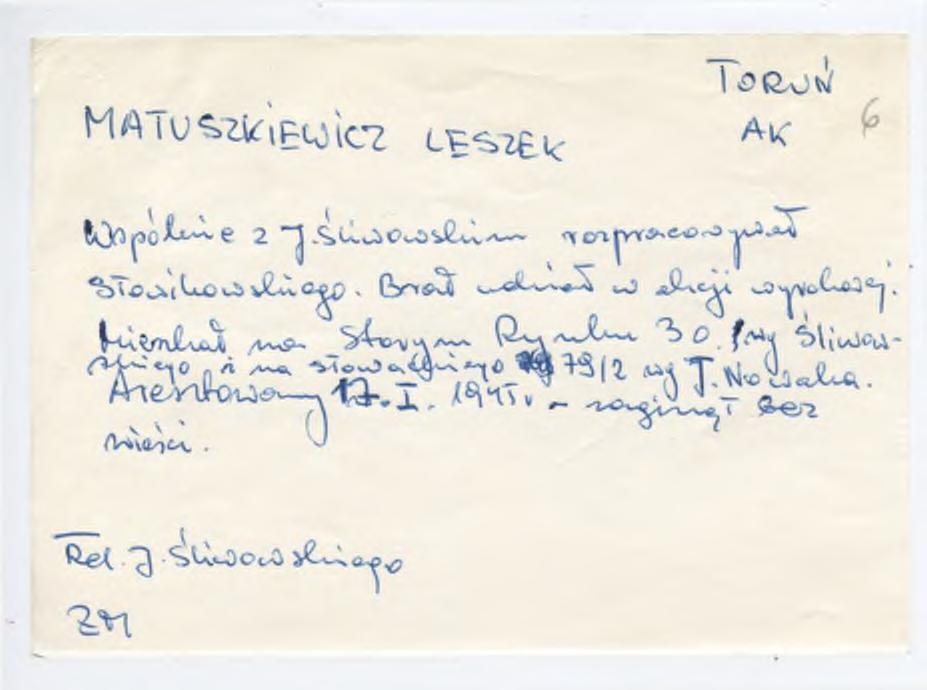 TORUŃ
MATUSZKIEWICZ LESZEK
AK
6
Wspólnie z J. Śliwowskim rozpracowywał
Słowikowskiego. Brał udział w akcji wyrokowej.
Mieszkał na Starym Rynku 30. wg Śliwow-
skiego i na Słowackiego 79/2 wg J. Nowaka.
Aresztowany 17.I. 1945r. – zaginął bez
wieści.
Rel. J. Śliwowskiego
ZM